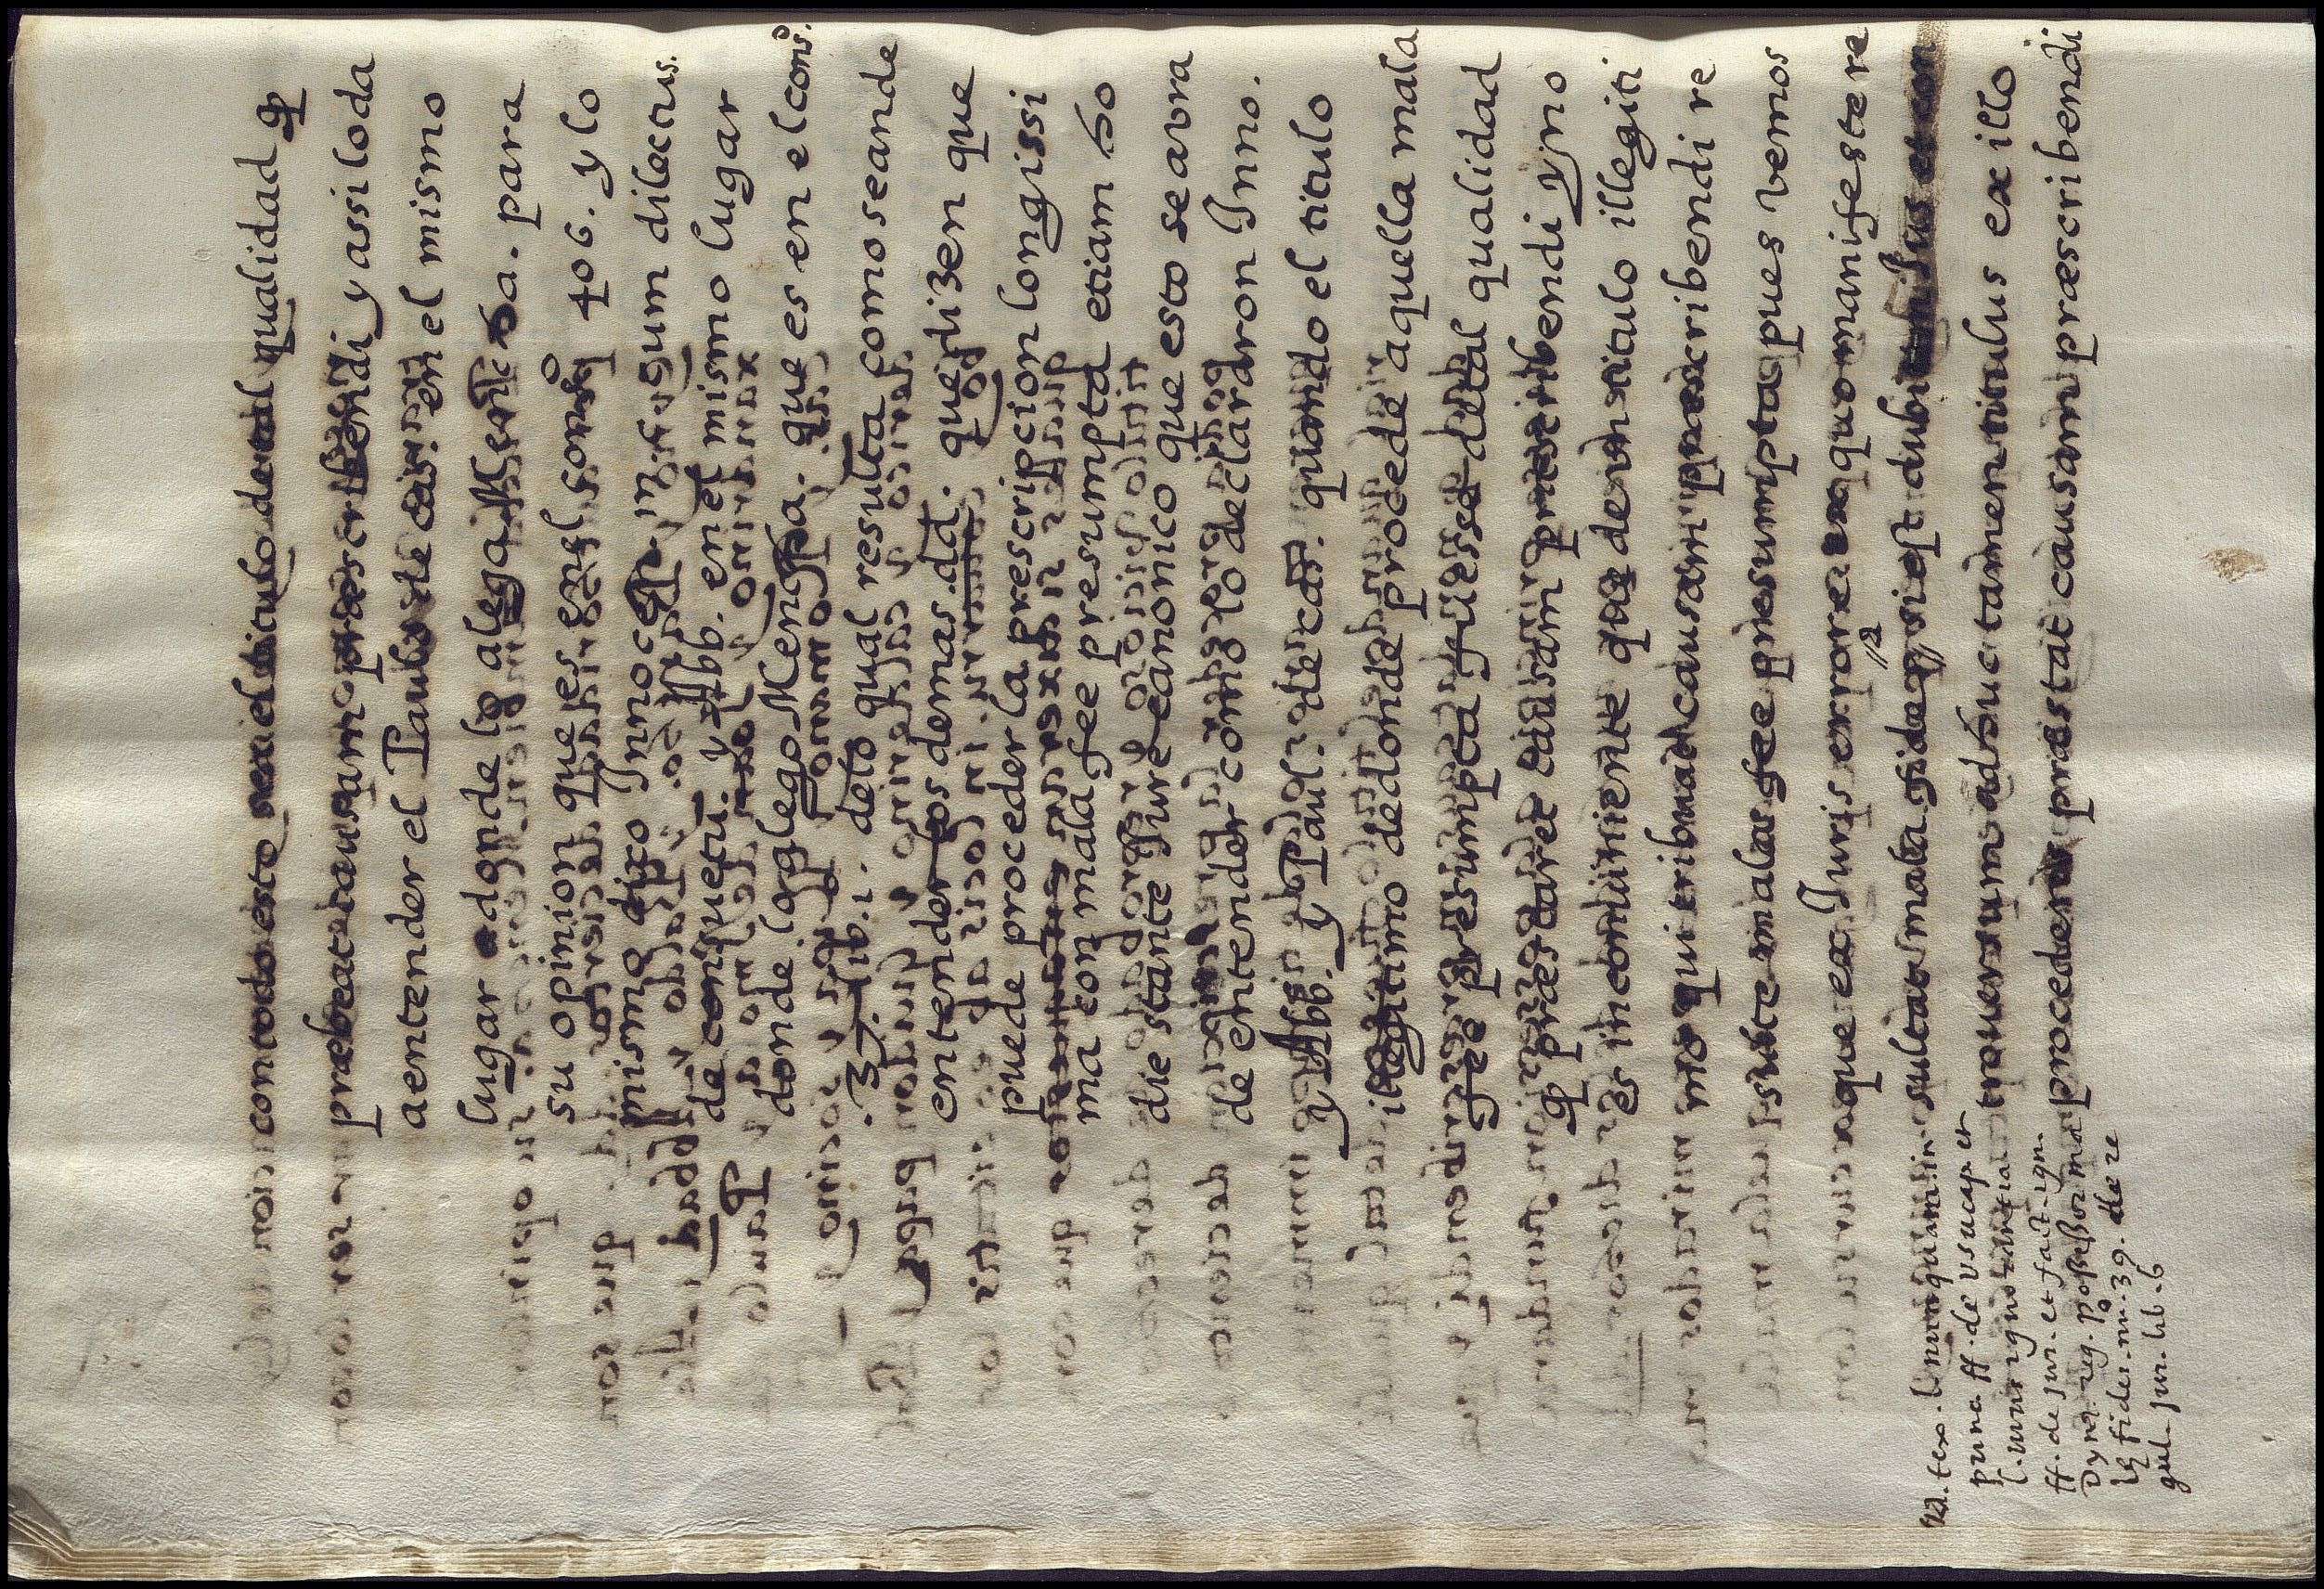 con todo esto sea el titulo de tal qualidad q̃
præbeat causam præscribendi y assi lo da
a entender el Paulo de cas. en el mismo
lugar adonde lo alega Menchaca. para
su opinion que es en el consº 406. y lo
mismo dixo Innocen. in c. cum dilectus.
de consuetu. y Abb. en el mismo lugar
donde lo alego Menchaca. que es en el consº.
.37. lib. 1. delo qual resulta como se an de
entender los demas. dd. que dizen que
puede proceder la prescripcion longissi
ma con mala fee presumpta etiam ho
die stante Jure canonico que esto se avra
de entender como lo declararon Inno.
y Abb. y Paul. de cas. quando el titulo
illegitimo de donde procede aquella mala
fee presumpta fuesse de tal qualidad
q̃ præstaret causam præscribendi y no
es inconuiniente que de un titulo illegiti
mo qui tribuat causam præscribendi re
sulte mala fee presumpta pues vemos
que ex Juris errore ex quo manifeste re
sultat mala fides si est dubium
trouersum adhuc tamen titulus ex illo
procedens præstat causam præscribendi
tex. l. nunquam in
puna ff. de usucap. et
l. iuris ignorantia
ff. de jur. et fact. ign.
Dyn. reg. possessor ma
le fidei. nu. 39. de re
gul. jur. lib. 6